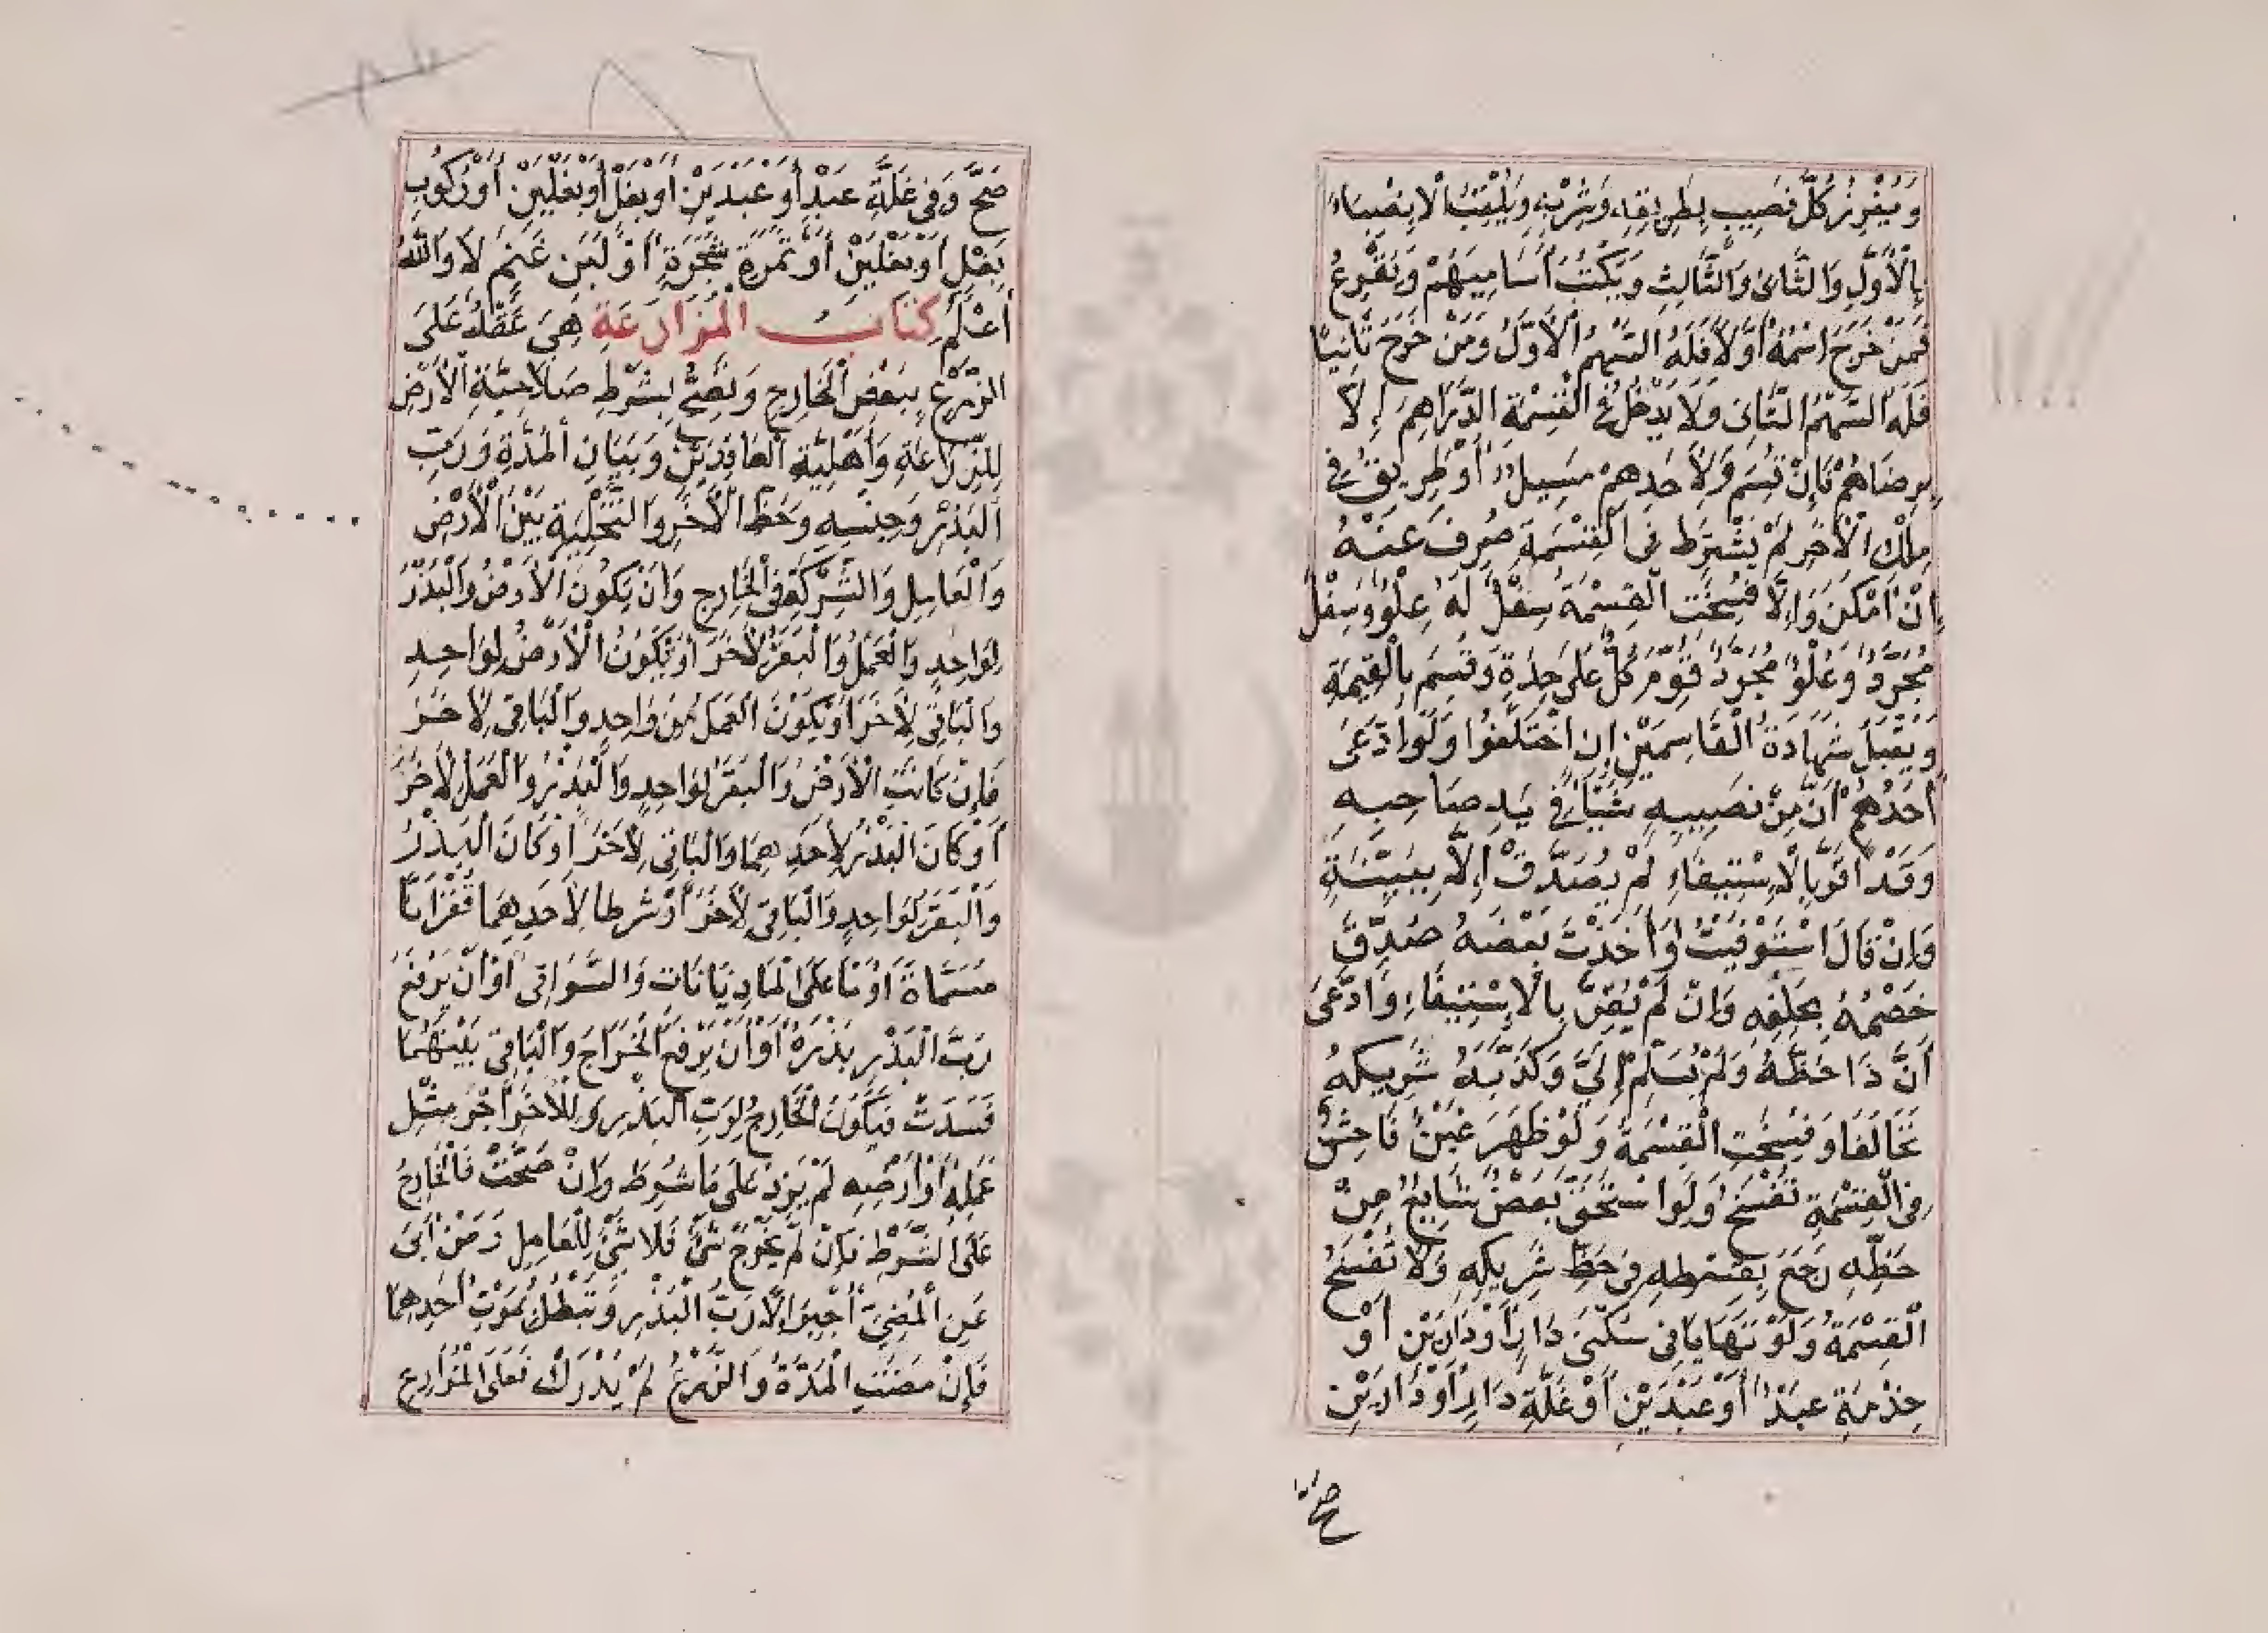 وَيُفْرِزُ كُلَّ نَصِيبٍ بِطَرِيقِهِ وَشِرْبِهِ وَيُلَقِّبُ الْاَنْصِبَاءَ
بِالْاَوَّلِ وَالثَّانِى وَالثَّالِثِ وَيَكْتُبُ اَسَامِيَهُمْ وَيَقْرِعُ
فَمَنْ خَرَجَ اسْمُهُ اَوَّلًا فَلَهُ السَّهْمُ الْاَوَّلُ وَمَنْ خَرَجَ ثَانِيًا
فَلَهُ السَّهْمُ الثَّانِى وَلَا يَدْخُلُ فِى الْقِسْمَةِ الدَّرَاهِمَ اِلَّا
بِرِضَاهُمْ فَاِنْ قُسِمَ وَلِاَحَدِهِمْ مَسِيلٌ اَوْ طَرِيقٌ فِى
مِلْكِ الْاٰخَرِ لَمْ يُشْتَرَط فِى الْقِسْمَةِ صُرِفَ عَنْهُ
اِنْ اَمْكَنَ وَاِلَّا فُسِخَتِ الْقِسْمَةُ سِفْلٌ لَهُ عِلْوٌ وَسِفْلٌ
مُجَرَّدٌ وَعُلْوٌ مُجَرَّدٌ قُوِّمَ كُلٌّ عَلَى حِدَةٍ وَقُسِمَ بِالْقِيمَةِ
وَيُقْبَلُ شَهَادَةُ الْقَاسِمَيْنِ اِنِ اخْتَلَفُوا وَلَوِ ادَّعَى
اَحَدُهُمْ اَنَّ مِنْ نَصِيبِهِ شَيْأً فِى يَدِ صَاحِبِهِ
وَقَدْ اَقَرَّ بِالْاِسْتِيفَاءِ لَمْ يُصَدَّقْ اِلَّا بِبَيِّنَةٍ
وَاِنْ قَالَ اسْتَوْفَيْتُ وَاَخَذْتَ بَعْضَهُ صُدِّقَ
خَصْمُهُ بِحَلِفِهِ وَاِنْ لَمْ يُقِرَّ بِالْاِسْتِيفَاءِ وَادَّعَى
اَنَّ ذَا حَظَّهُ وَلَمْ يُسَلِّمْ اِلَىَّ وَكَذَّبَهُ شَرِيكُهُ
تَحَالَفَا وَفُسِخَتِ الْقِسْمَةُ وَلَوْ ظَهَرَ غَبْنٌ فَاحِشٌ
فِى الْقِسْمَةِ تُفْسَخُ وَلَوِ اسْتُحِقَّ بَعْضٌ شَايِعٌ مِنْ
حَظِّهِ رَجَعَ بِقِسْطِهِ فِى حَظِّ شَرِيكِهِ وَلَا تُفْسَخُ
الْقِسْمَةُ وَلَوْ تَهَايَاَ فِى سُكْنَى دَارٍ اَوْ دَارَيْنِ اَوْ
خِدْمَةِ عَبْدٍ اَوْ عَبْدَيْنِ اَوْ غَلَّةِ دَارٍ اَوْ دَارَيْنِ
صَحَّ
صَحَّ وَفِى غَلَّةِ عَبْدٍ اَوْ عَبْدَيْنِ اَوْ بَغْلٍ اَوْ بَغْلَيْنِ اَوْ رُكُوبِ
بَغْلٍ اَوْ بَغْلَيْنِ اَوْ ثَمَرَةِ شَجَرَةٍ اَوْ لَبَنِ غَنَمٍ لَا وَاللّٰهُ
اَعْلَمُ كِتَابُ الْمُزَارَعَةِ هِىَ عَقْدٌ عَلَى
الزَّرْعِ بِبَعْضِ الْخَارِجِ وَتَصِحُّ بِشَرْطِ صَلَاحِيَّةِ الْاَرْضِ
لِلزِّرَاعَةِ وَاَهْلِيَّةِ الْعَاقِدَيْنِ وَبَيَانِ الْمُدَّةِ وَرَبِّ
الْبَذْرِ وَجِنْسِهِ وَحَظِّ الْاٰخَرِ وَالتَّخْلِيَةِ بَيْنَ الْاَرْضِ
وَالْعَامِلِ وَالشِّرْكَةِ فِى الْخَارِجِ وَاَنْ يَكُونَ الْاَرْضُ وَالْبَذْرُ
لِوَاحِدٍ وَالْعَمَلُ وَالْبَقَرُ لِاٰخَرَ اَوْ يَكُونَ الْاَرْضُ لِوَاحِدٍ
وَالْبَاقِى لِاٰخَرَ اَوْ يَكُونَ الْعَمَلُ مِنْ وَاحِدٍ وَالْبَاقِى لِاٰخَرَ
فَاِنْ كَانَتِ الْاَرْضُ وَالْبَقَرُ لِوَاحِدٍ وَالْبَذْرُ وَالْعَمَلُ لِاٰخَرَ
اَوْ كَانَ الْبَذْرُ لِاَحَدِهِمَا وَالْبَاقِى لِاٰخَرَ اَوْ كَانَ الْبَذْرُ
وَالْبَقَرُ لِوَاحِدٍ وَالْبَاقِى لِاٰخَرَ اَوْ شَرَطَا لِاَحَدِهِمَا قُفْزَانًا
مُسَمَّاةً اَوْ مَا عَلَى الْمَاذِيَانَاتِ وَالسَّوَاقِى اَوْ اَنْ يَرْفَعَ
رَبُّ الْبَذْرِ بَذْرَهُ اَوْ اَنْ يَرْفَعَ الْخَرَاجَ وَالْبَاقِى بَيْنَهُمَا
فَسَدَتْ فَيَكُونُ الْخَارِجُ لِرَبِّ الْبَذْرِ وَلِلْاٰخَرِ اَجْرُ مِثْلِ
عَمَلِهِ اَوْ اَرْضِهِ لَمْ يَزِدْ عَلَى مَا شُرِطَ وَاِنْ صَحَّتْ فَالْخَارِجُ
عَلَى الشَّرْطِ فَاِنْ لَمْ يَخْرُجْ شَىْءٌ فَلَا شَىْءَ لِلْعَامِلِ وَمَنْ اَبَى
عَنِ الْمُضِىِّ اُجْبِرَ اِلَّا رَبُّ الْبَذْرِ وَتَبْطُلُ بِمَوْتِ اَحَدِهِمَا
فَاِنْ مَضَتِ الْمُدَّةُ وَالزَّرْعُ لَمْ يُدْرَكْ فَعَلَى الْمُزَارِعِ